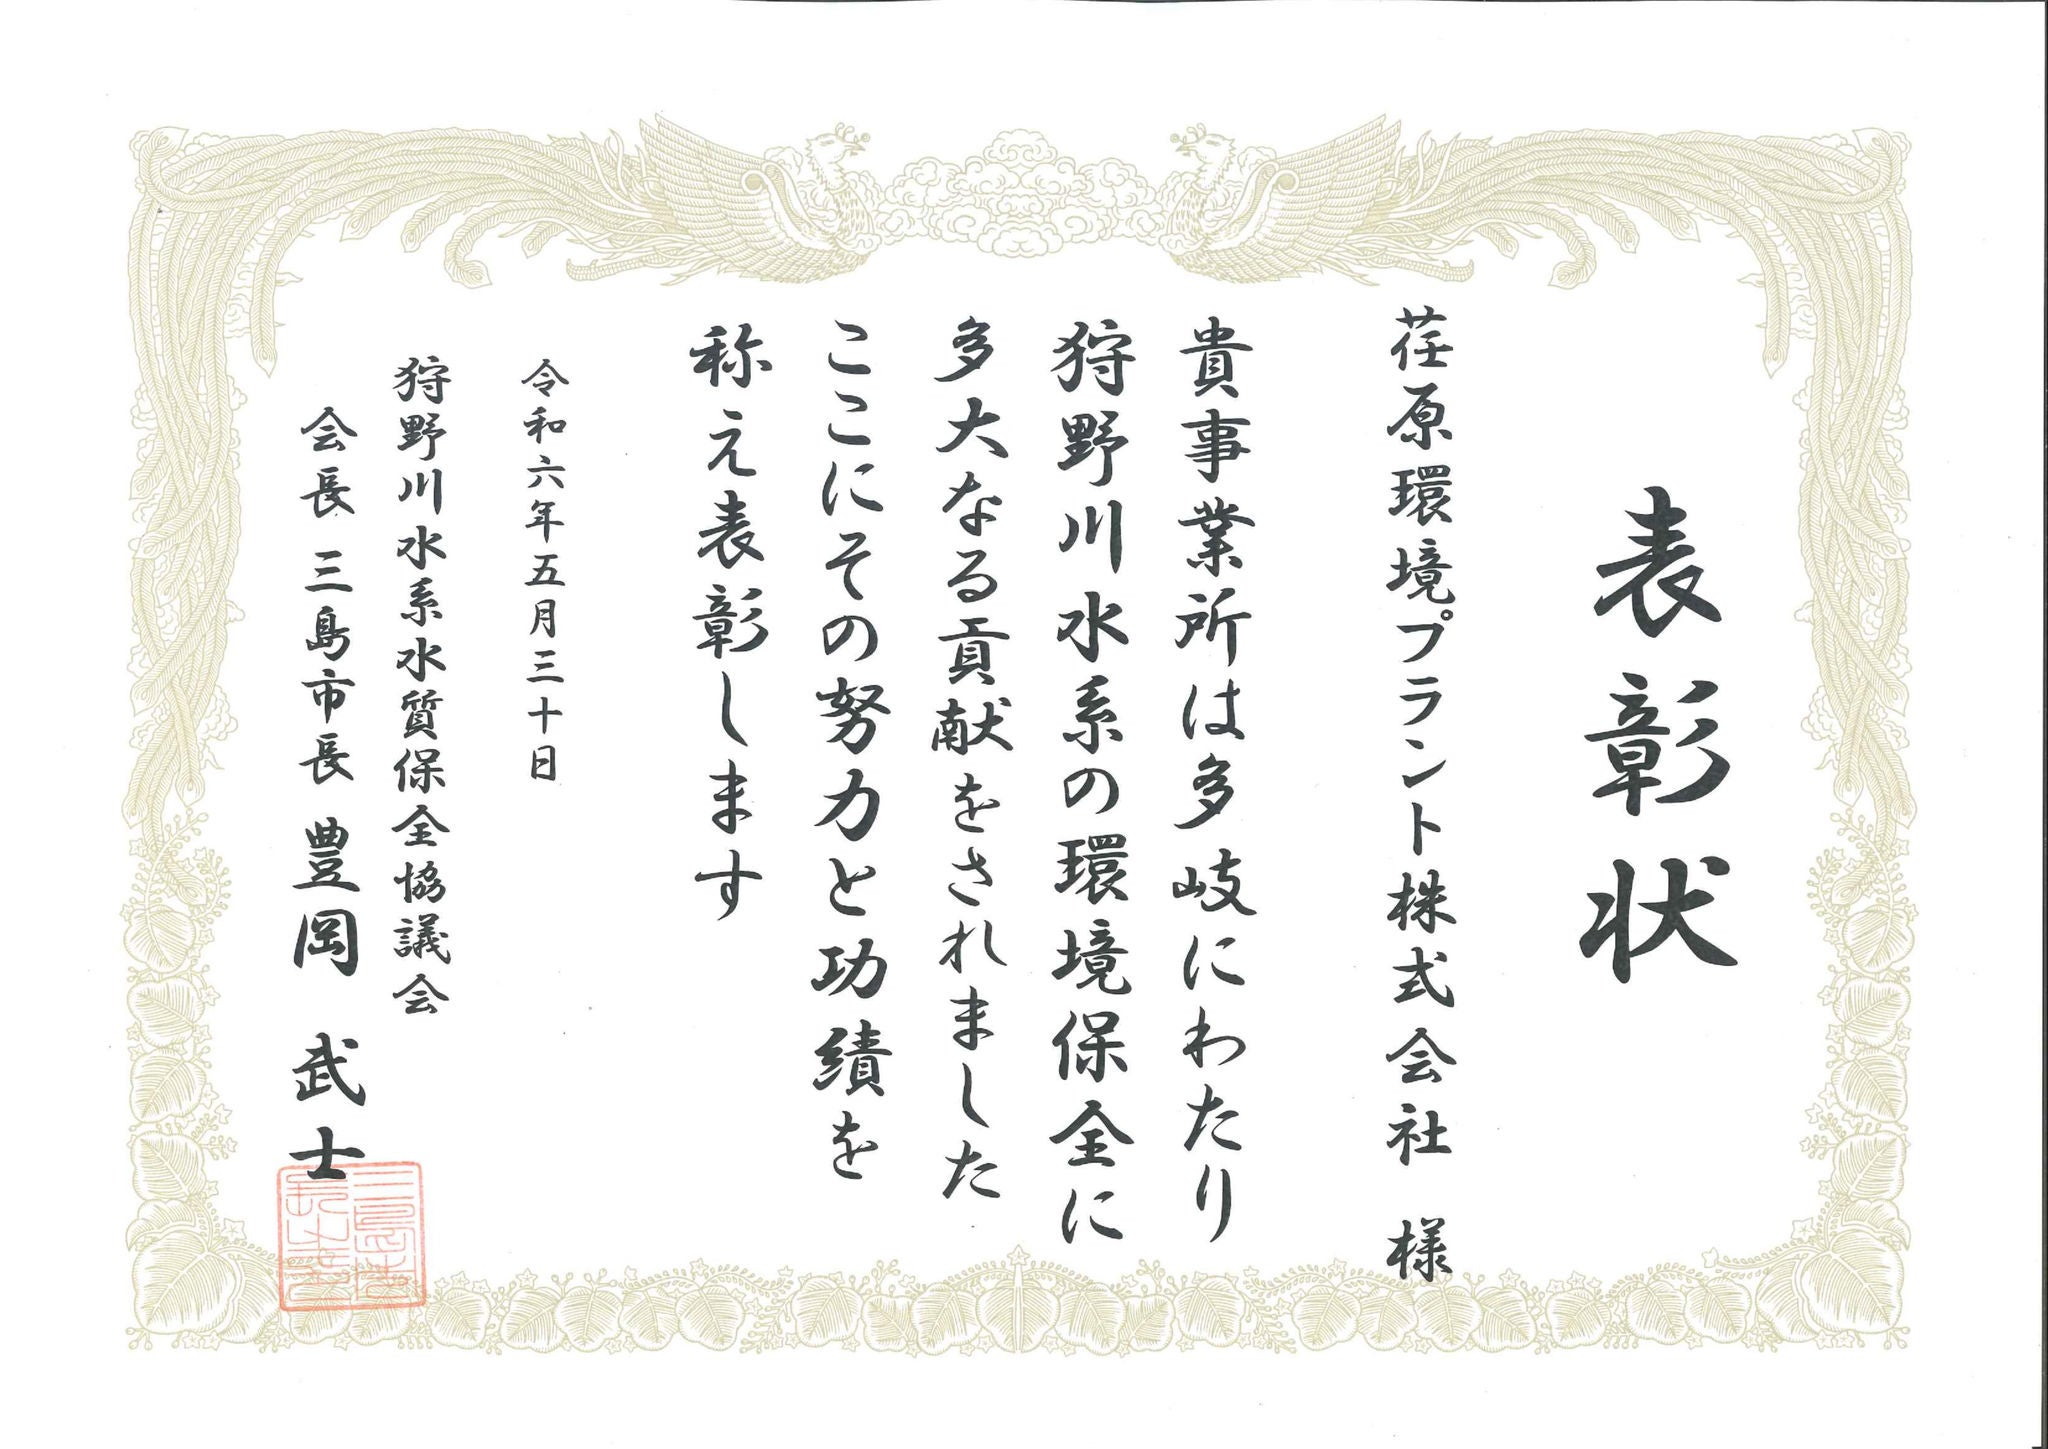 表彰状
荏原環境プラント株式会社 様
貴事業所は多岐にわたり
狩野川水系の環境保全に
多大なる貢献をされました
ここにその努力と功績を
称え表彰します
令和六年五月三十日
狩野川水系水質保全協議会
会長 三島市長 豊岡 武士